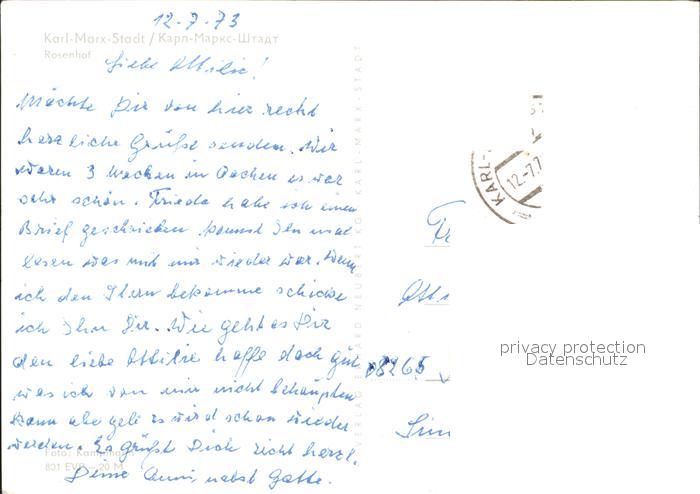 12.7.73
Karl-Marx-Stadt / Карл-Маркс-Штадт
Rosenhof
Liebe Ottilie!
Möchte Dir von hier recht
herzliche Grüße senden. Wir
waren 3 Wochen in Aachen es war
sehr schön. Frieda habe ich einen
Brief geschrieben kannst Ihn mal
lesen was mit mir wieder war. Wenn
ich den Stern bekomme schicke
ich Ihn Dir. Wie geht es Dir
den liebe Ottilie hoffe doch gut
was ich von mir nicht behaupten
kann aber es wird schon wieder
werden. Es grüßt Dich recht herzl.
Deine Anni nebst Gatte.
Foto:
831 EVP — 20 M
KARL-MARX-STADT
KARL-
12.-7.7
Fr
Ott
8265
privacy protection
Datenschutz